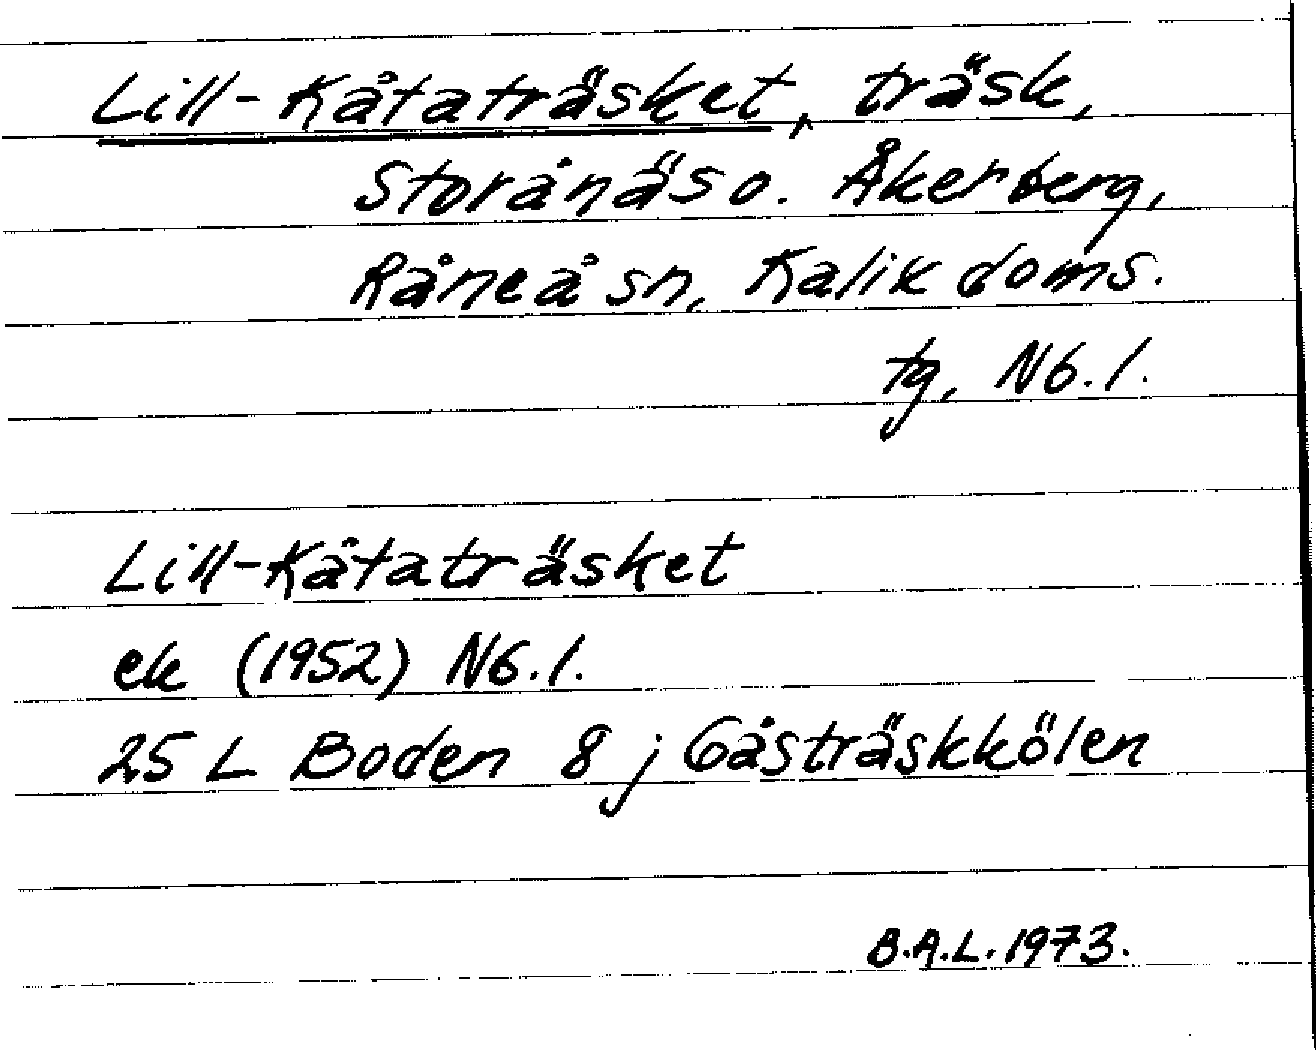 Lill-Kåtaträsket, träsk,
Storånäs o. Åkerberg,
Råneå sn, Kalix doms.
tg, Nb. l.
Lill-Kåtaträsket
ek (1952) Nb. l.
25 L Boden 8 j Gåsträskkölen
B.A.L. 1973.